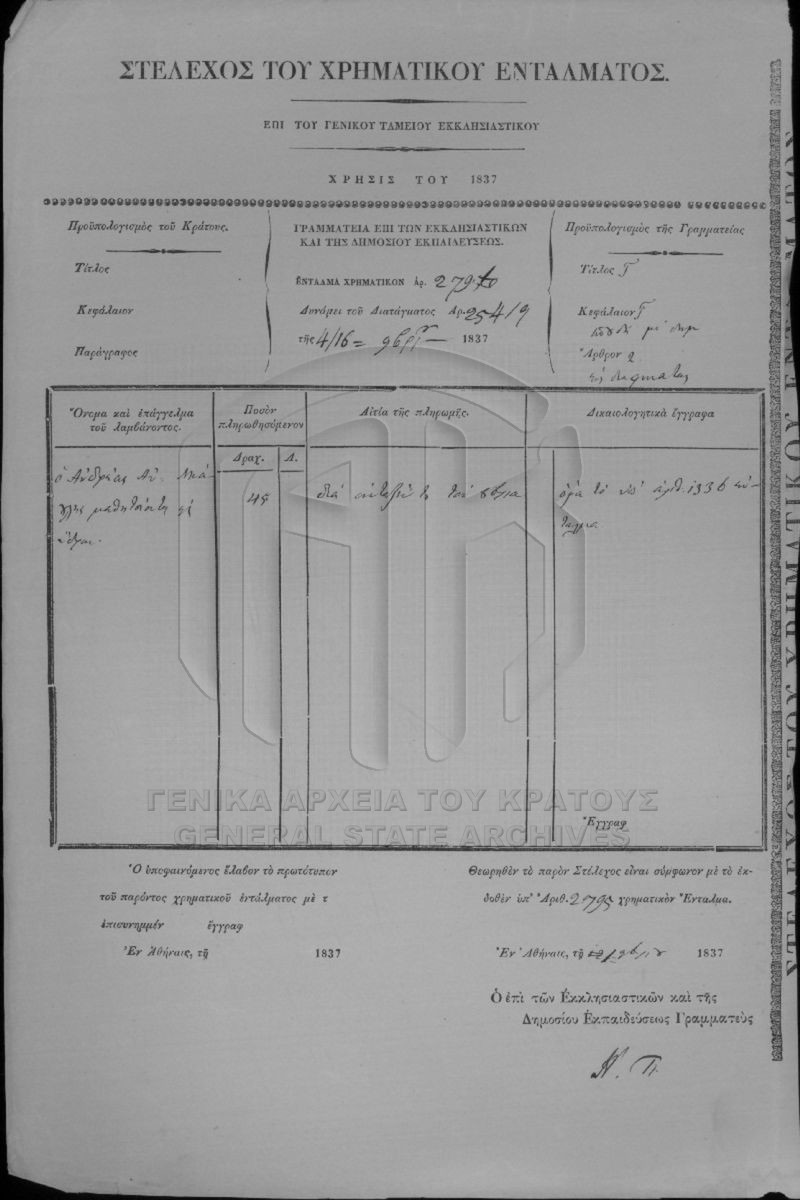 ΣΤΕΛΕΧΟΣ ΤΟΥ ΧΡΗΜΑΤΙΚΟΥ ΕΝΤΑΛΜΑΤΟΣ.
ΕΠΙ ΤΟΥ ΓΕΝΙΚΟΥ ΤΑΜΕΙΟΥ ΕΚΚΛΗΣΙΑΣΤΙΚΟΥ
ΧΡΗΣΙΣ ΤΟΥ 1837
Προϋπολογισμὸς τοῦ Κράτους.
Τίτλος
Κεφάλαιον
Παράγραφος
ΓΡΑΜΜΑΤΕΙΑ ΕΠΙ ΤΩΝ ΕΚΚΛΗΣΙΑΣΤΙΚΩΝ
ΚΑΙ ΤΗΣ ΔΗΜΟΣΙΟΥ ΕΚΠΑΙΔΕΥΣΕΩΣ.
ΕΝΤΑΛΜΑ ΧΡΗΜΑΤΙΚΟΝ Ἀρ.
Δυνάμει τοῦ Διατάγματος Ἀρ. 25419
τῆς 4/16 1837
Προϋπολογισμὸς τῆς Γραμματείας
Τίτλος Γ
Κεφάλαιον Γ
Ἄρθρον 2
Ὄνομα καὶ ἐπάγγελμα
τοῦ λαμβάνοντος.
Ποσὸν
πληρωθησόμενον
Δραχ. Λ.
Αἰτία τῆς πληρωμῆς.
Δικαιολογητικὰ ἔγγραφα
ὁ Ἀνδρέας
45
διὰ τοῦ
ὅρα τὸ ὑπ' ἀριθ. 1336
Ἔγγραφ
ΓΕΝΙΚΑ ΑΡΧΕΙΑ ΤΟΥ ΚΡΑΤΟΥΣ
GENERAL STATE ARCHIVES
Ὁ ὑποφαινόμενος ἔλαβον τὸ πρωτότυπον
τοῦ παρόντος χρηματικοῦ ἐντάλματος μὲ τ
ἐπισυνημμέν ἔγγραφ
Ἐν Ἀθήναις, τῇ 1837
Θεωρηθὲν τὸ παρὸν Στέλεχος εἶναι σύμφωνον μὲ τὸ ἐκ-
δοθὲν ὑπ' Ἀριθ. 2795 χρηματικὸν Ἔνταλμα.
Ἐν Ἀθήναις, τῇ 1837
Ὁ ἐπὶ τῶν Ἐκκλησιαστικῶν καὶ τῆς
Δημοσίου Ἐκπαιδεύσεως Γραμματεὺς
ΣΤΕΛΕΧΟΣ ΤΟΥ ΧΡΗΜΑΤΙΚΟΥ ΕΝΤΑΛΜΑΤΩΝ